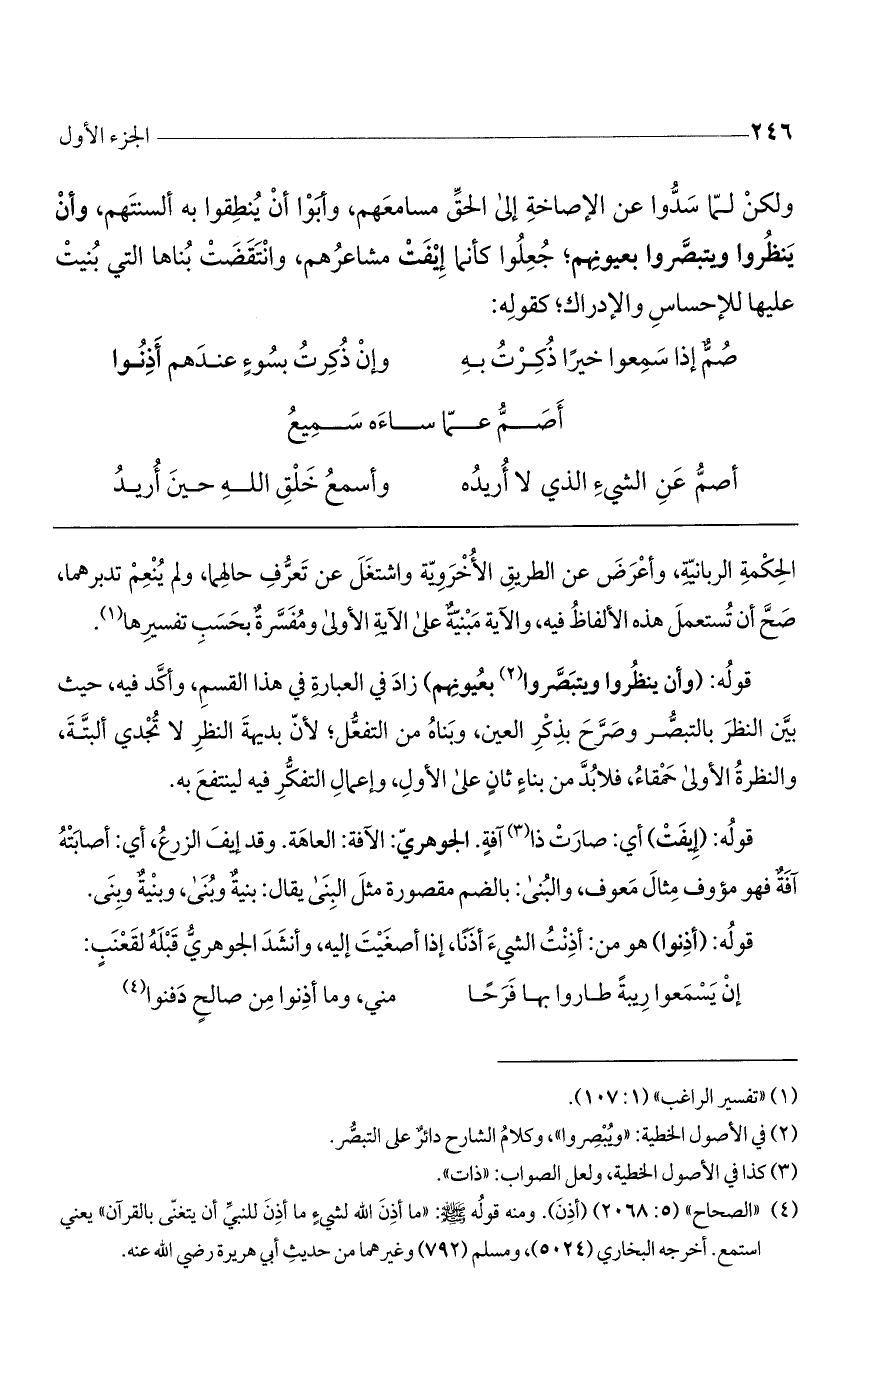 ٢٤٦ الجزء الأول
ولكنْ لـمّا سَدُّوا عن الإصاخةِ إلىٰ الحقِّ مسامعَهم، وأبَوْا أنْ يُنطِقوا به ألسنتَهم، وأنْ
يَنظُروا ويتبصَّروا بعيونِهم؛ جُعِلُوا كأنما إيْفَتْ مشاعرُهم، وانْتَقَضَتْ بُناها التي بُنيتْ
عليها للإحساسِ والإدراك؛ كقولِه:
صُمٌّ إذا سَمِعوا خيرًا ذُكِرْتُ بهِ وإنْ ذُكِرتُ بسُوءٍ عندَهم أَذِنُوا
أَصَمُّ عمّا ساءَه سَمِيعُ
أصمُّ عَنِ الشيءِ الذي لا أُريدُه وأسمعُ خَلْقِ اللهِ حينَ أُريدُ
الحِكْمةِ الربانيّةِ، وأعْرَضَ عن الطريقِ الأُخْرَويّة واشتغَلَ عن تَعرُّفِ حالِها، ولم يُنْعِمْ تدبرهما،
صَحَّ أن تُستعملَ هذه الألفاظُ فيه، والآية مَبْنيّةٌ علىٰ الآيةِ الأولىٰ ومُفَسَّرةٌ بحَسَبِ تفسيرِها(١).
قولُه: (وأن ينظُروا ويتبَصَّروا(٢) بعُيونِهم) زادَ في العبارةِ في هذا القسمِ، وأكَّد فيه، حيث
بيَّن النظرَ بالتبصُّر وصَرَّحَ بذِكْرِ العين، وبَناهُ من التفعُّل؛ لأنّ بديهةَ النظرِ لا تُجْدي ألبتَّةَ،
والنظرةُ الأولىٰ حَمْقاءُ، فلابُدَّ من بناءٍ ثانٍ علىٰ الأولِ، وإعمالِ التفكُّرِ فيه لينتفعَ به.
قولُه: (إيفَتْ) أي: صارَتْ ذا(٣) آفةٍ. الجوهريّ: الآفة: العاهَة. وقد إيفَ الزرعُ، أي: أصابَتْهُ
آفَةٌ فهو مؤوف مِثالَ مَعوف، والبُنىٰ: بالضم مقصورة مثلَ البِنَىٰ يقال: بنيةٌ وبُنَىٰ، وبنْيةٌ وبِنَى.
قولُه: (أذِنوا) هو من: أذِنْتُ الشيءَ أذَنًا، إذا أصغَيْتَ إليه، وأنشَدَ الجوهريُّ قَبْلَهُ لقَعْنَبٍ:
إنْ يَسْمَعوا رِيبةً طاروا بها فَرَحًا مني، وما أذِنوا مِن صالحٍ دَفنوا(٤)
(١) «تفسير الراغب» (١: ١٠٧).
(٢) في الأصول الخطية: «ويُبْصِروا»، وكلامُ الشارح دائرٌ على التبصُّر.
(٣) كذا في الأصول الخطية، ولعل الصواب: «ذات».
(٤) «الصحاح» (٥: ٢٠٦٨) (أذِنَ). ومنه قولُه ﷺ: «ما أذِنَ الله لشيءٍ ما أذِنَ للنبيِّ أن يتغنّى بالقرآن» يعني
استمع. أخرجه البخاري (٥٠٢٤)، ومسلم (٧٩٢) وغيرهما من حديثِ أبي هريرة رضي الله عنه.